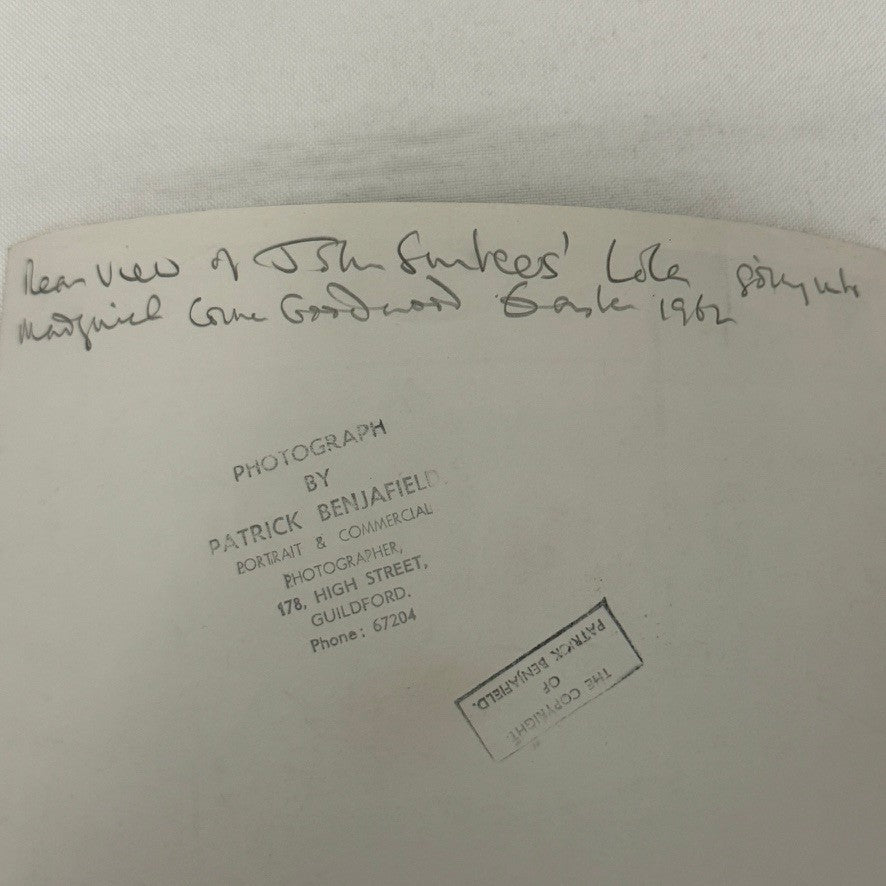 Rear View of John Surtees' Lola going into
Madgwick Corner Goodwood Easter 1962
PHOTOGRAPH
BY
PATRICK BENJAFIELD.
PORTRAIT & COMMERCIAL
PHOTOGRAPHER,
178, HIGH STREET,
GUILDFORD.
Phone: 67204
THE COPYRIGHT
OF
PATRICK BENJAFIELD.